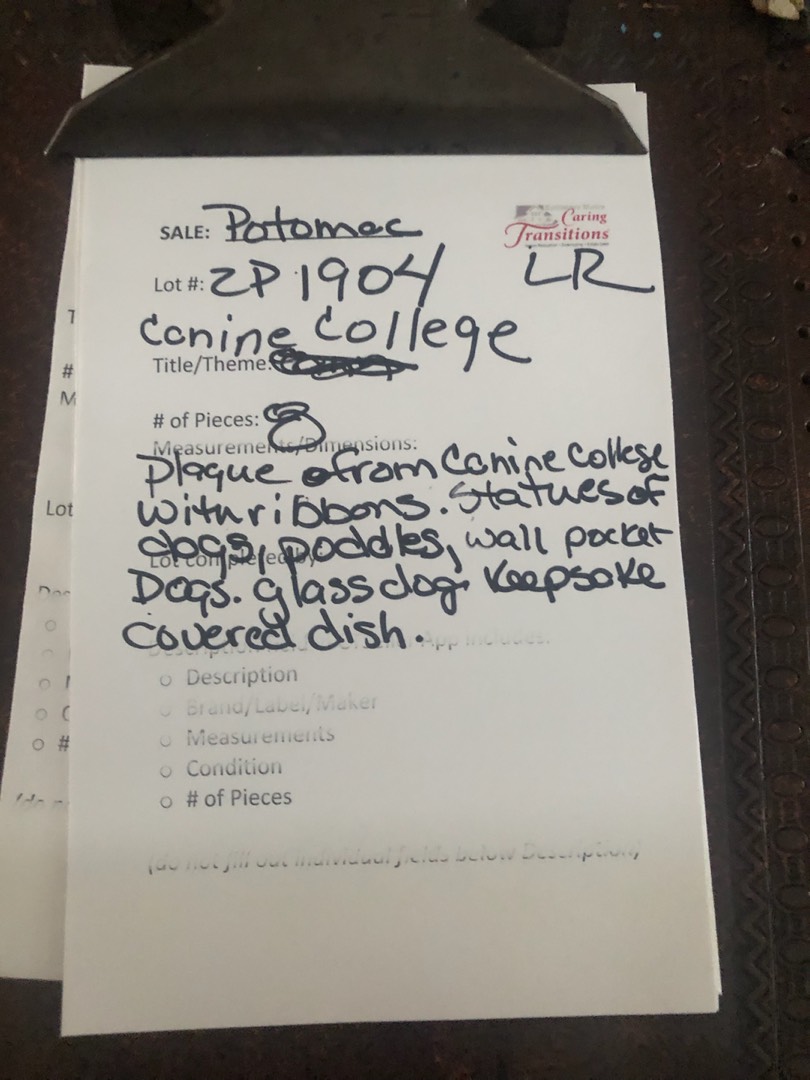 SALE: Potomac
Caring
Transitions
Lot #: ZP 1904 LR
Canine College
Title/Theme:
# of Pieces: 8
Measurements/Dimensions:
Plaque from Canine College
with ribbons. Statues of
dogs, poddles, wall pocket
Lot completed by:
Dogs. glass dog keepsake
covered dish.
App includes:
o Description
o Brand/Label/Maker
o Measurements
o Condition
o # of Pieces
(do not fill out individual fields below Description)
T
#
M
Lot
o #